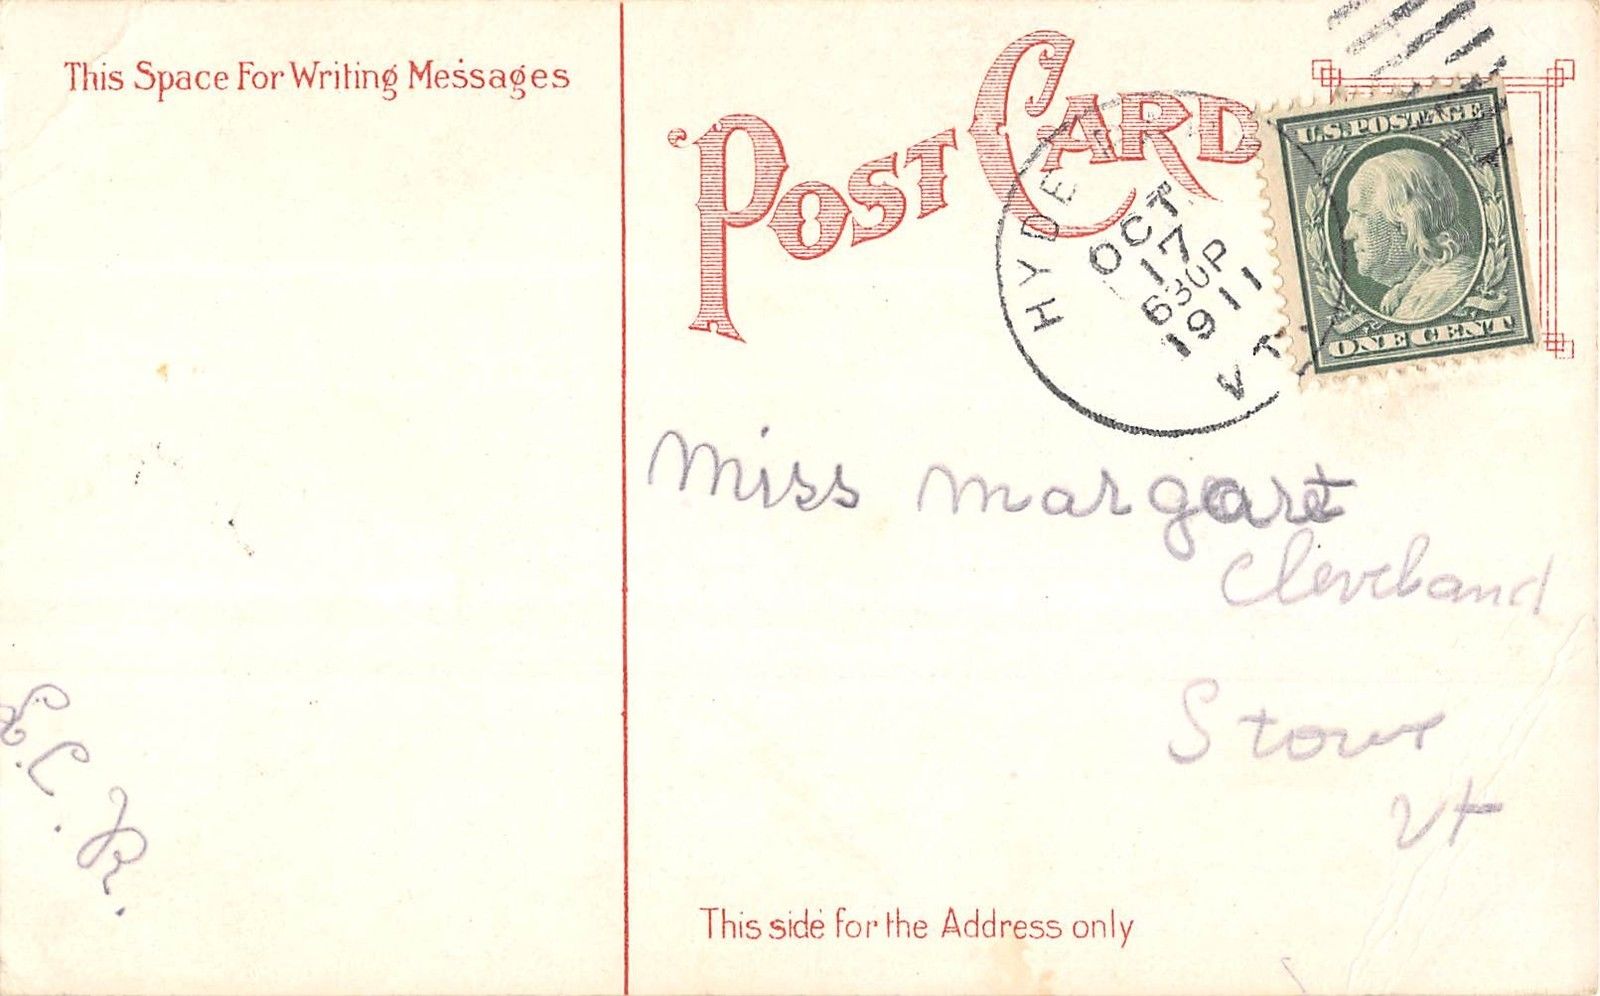 This Space For Writing Messages
POST CARD
HYDE
OCT
17
630P
1911
VT
U.S. POSTAGE
ONE CENT
Miss Margaret
Cleveland
Stowe
Vt
This side for the Address only